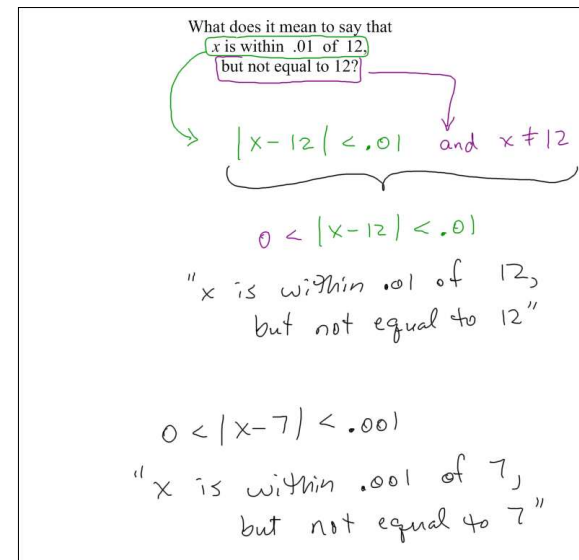 What does it mean to say that
x is within .01 of 12,
but not equal to 12?
|x-12| < .01 and x ≠ 12
0 < |x-12| < .01
"x is within .01 of 12,
but not equal to 12"
0 < |x-7| < .001
"x is within .001 of 7,
but not equal to 7"